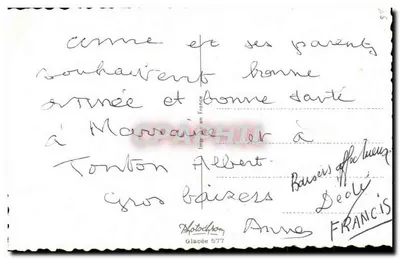 Anne et ses parents
souhaitent bonne
année et bonne santé
à Marraine et à
Tonton Albert
Gros baizers
Anne
Baisers affectueux
Dédé
FRANCIS
Photochrom
Glacée 577